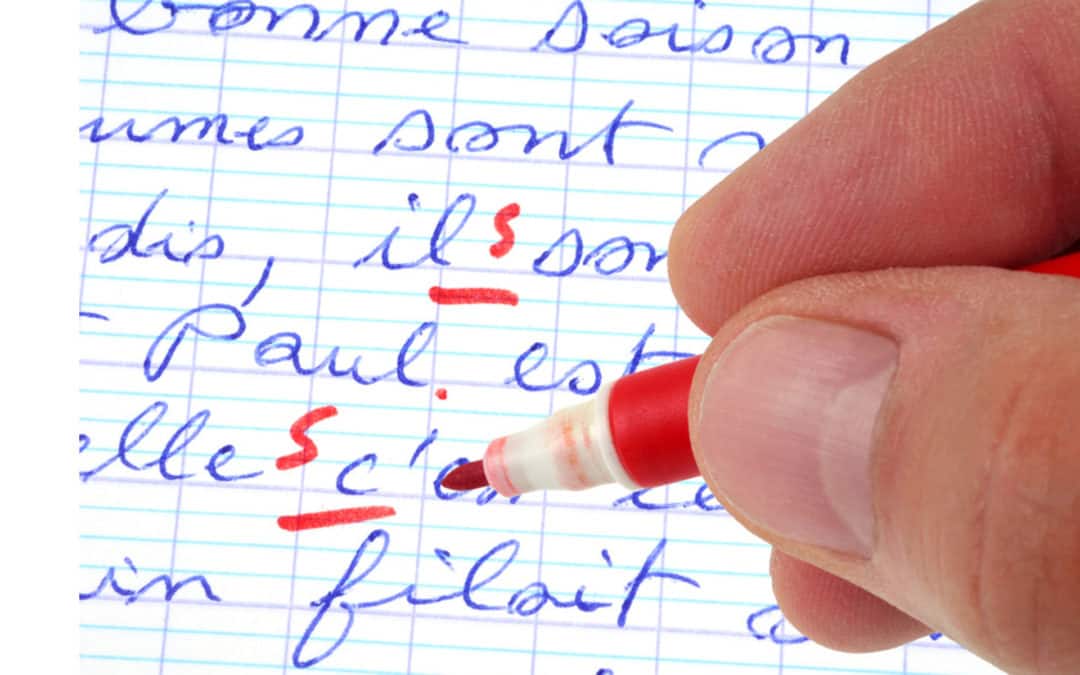 bonne saison
umes sont
dis, ils son
Paul. est
elles c'en
in filait